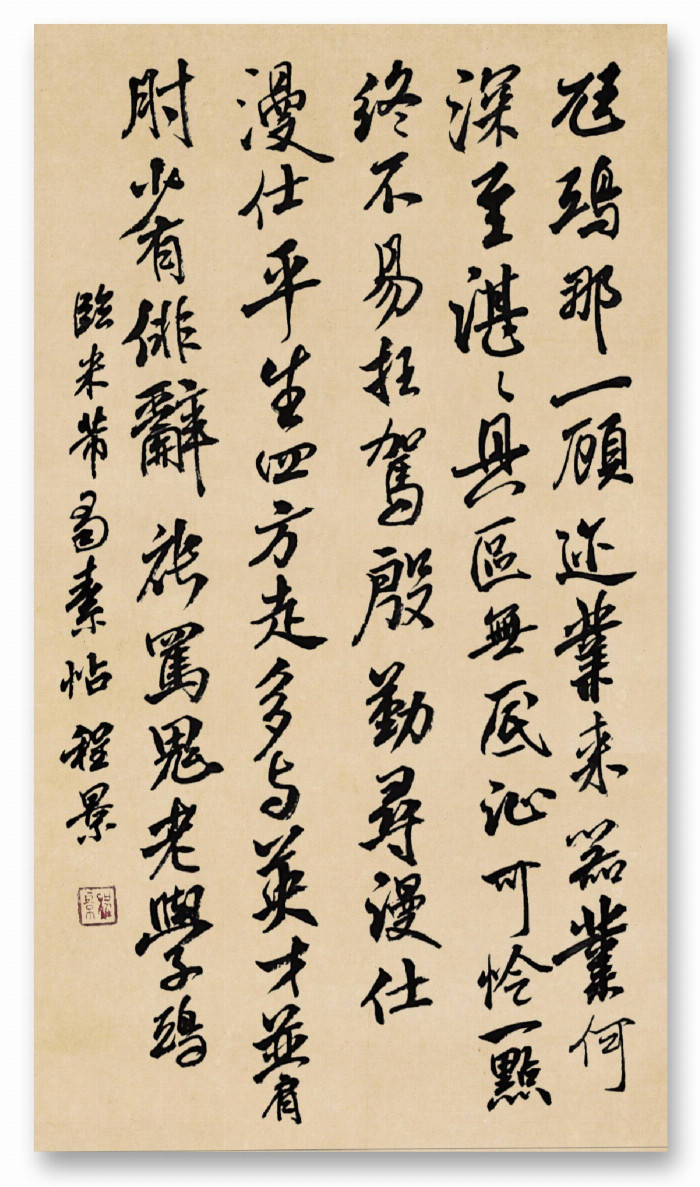 尫鵄那一顧迩業来器業何
深至湛〻具區無底沚可怜一點
終不易枉駕殷勤尋漫仕
漫仕平生四方走多与英才並肩
肘少有俳辭能罵鬼老學鵄
臨米芾蜀素帖 程景